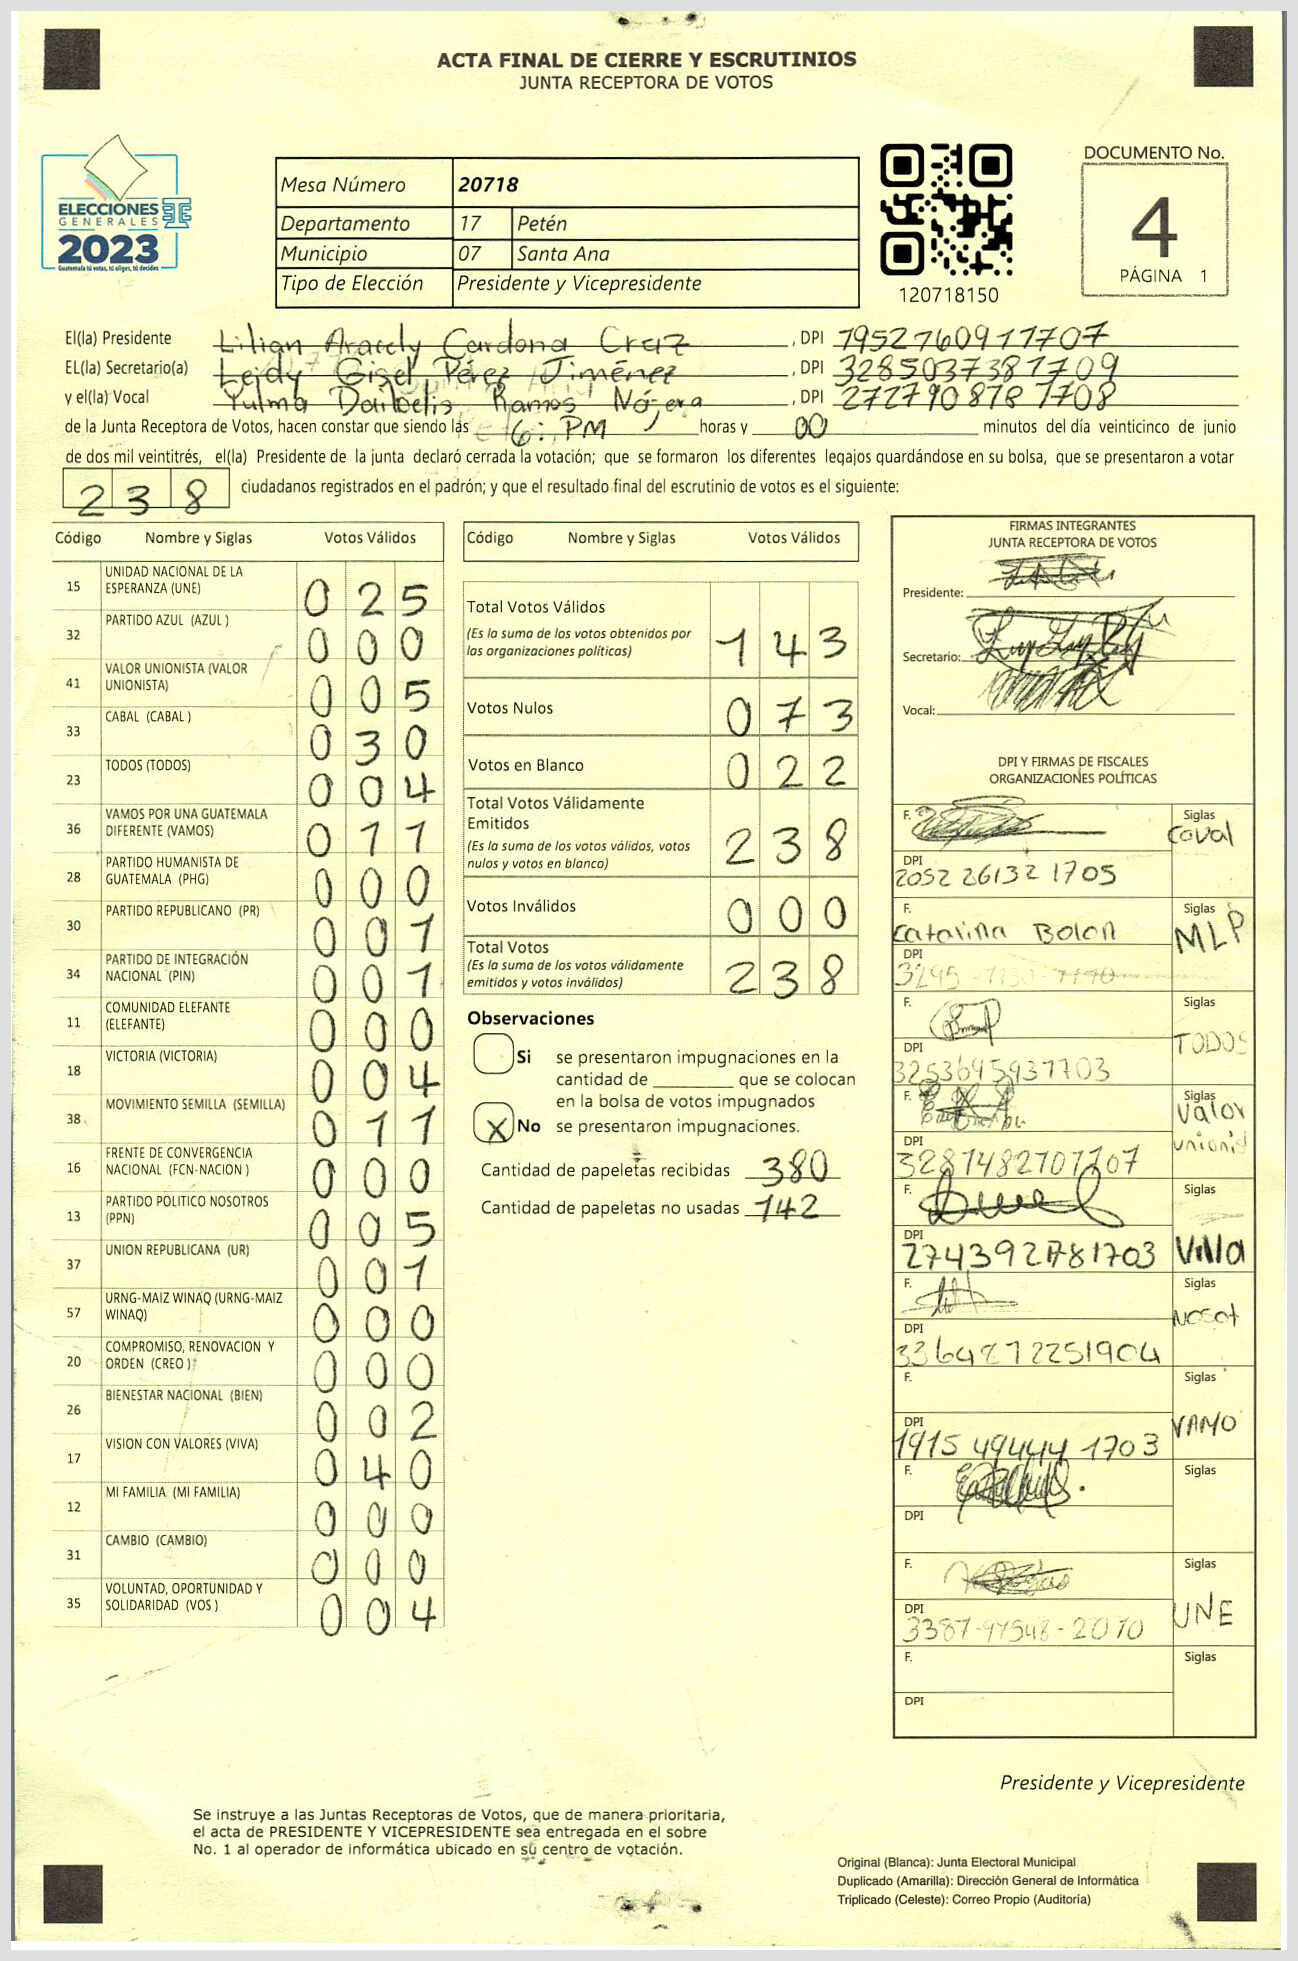 ACTA FINAL DE CIERRE Y ESCRUTINIOS
JUNTA RECEPTORA DE VOTOS
ELECCIONES
GENERALES
2023
Guatemala tú votas, tú eliges, tú decides
Mesa Número 20718
Departamento 17 Petén
Municipio 07 Santa Ana
Tipo de Elección Presidente y Vicepresidente
120718150
DOCUMENTO No.
4
PÁGINA 1
El(la) Presidente Lilian Aracely Cardona Cruz, DPI 1952760911707
EL(la) Secretario(a) Leidy Gisel Pérez Jiménez, DPI 3285037381709
y el(la) Vocal Yulma Ramos Nájera, DPI 2727908781708
de la Junta Receptora de Votos, hacen constar que siendo las 6: PM horas y 00 minutos del día veinticinco de junio
de dos mil veintitrés, el(la) Presidente de la junta declaró cerrada la votación; que se formaron los diferentes legajos guardándose en su bolsa, que se presentaron a votar
238 ciudadanos registrados en el padrón; y que el resultado final del escrutinio de votos es el siguiente:
Código Nombre y Siglas Votos Válidos
15 UNIDAD NACIONAL DE LA ESPERANZA (UNE) 025
32 PARTIDO AZUL (AZUL ) 000
41 VALOR UNIONISTA (VALOR UNIONISTA) 005
33 CABAL (CABAL ) 030
23 TODOS (TODOS) 004
36 VAMOS POR UNA GUATEMALA DIFERENTE (VAMOS) 011
28 PARTIDO HUMANISTA DE GUATEMALA (PHG) 000
30 PARTIDO REPUBLICANO (PR) 001
34 PARTIDO DE INTEGRACIÓN NACIONAL (PIN) 001
11 COMUNIDAD ELEFANTE (ELEFANTE) 000
18 VICTORIA (VICTORIA) 004
38 MOVIMIENTO SEMILLA (SEMILLA) 011
16 FRENTE DE CONVERGENCIA NACIONAL (FCN-NACION ) 000
13 PARTIDO POLITICO NOSOTROS (PPN) 005
37 UNION REPUBLICANA (UR) 001
57 URNG-MAIZ WINAQ (URNG-MAIZ WINAQ) 000
20 COMPROMISO, RENOVACION Y ORDEN (CREO ) 000
26 BIENESTAR NACIONAL (BIEN) 002
17 VISION CON VALORES (VIVA) 040
12 MI FAMILIA (MI FAMILIA) 000
31 CAMBIO (CAMBIO) 000
35 VOLUNTAD, OPORTUNIDAD Y SOLIDARIDAD (VOS ) 004
Código Nombre y Siglas Votos Válidos
Total Votos Válidos 143
(Es la suma de los votos obtenidos por
las organizaciones políticas)
Votos Nulos 073
Votos en Blanco 022
Total Votos Válidamente
Emitidos 238
(Es la suma de los votos válidos, votos
nulos y votos en blanco)
Votos Inválidos 000
Total Votos 238
(Es la suma de los votos válidamente
emitidos y votos inválidos)
Observaciones
Si se presentaron impugnaciones en la
cantidad de ________ que se colocan
en la bolsa de votos impugnados
X No se presentaron impugnaciones.
Cantidad de papeletas recibidas 380
Cantidad de papeletas no usadas 142
FIRMAS INTEGRANTES
JUNTA RECEPTORA DE VOTOS
Presidente:
Secretario:
Vocal:
DPI Y FIRMAS DE FISCALES
ORGANIZACIONES POLÍTICAS
F. Siglas Caval
DPI 2052 26132 1705
F. Catarina Bolon Siglas MLP
DPI 3295
F. Siglas TODOS
DPI 3253645931703
F. Siglas Valor unionis
DPI 3281482701707
F. Siglas
DPI 2743927781703 ViVa
F. Siglas Nosot
DPI 3364872251904
F. Siglas VAMO
DPI 1915 49444 1703
F. Siglas
DPI
F. Siglas UNE
DPI 3387-97548-2010
F. Siglas
DPI
Presidente y Vicepresidente
Se instruye a las Juntas Receptoras de Votos, que de manera prioritaria,
el acta de PRESIDENTE Y VICEPRESIDENTE sea entregada en el sobre
No. 1 al operador de informática ubicado en su centro de votación.
Original (Blanca): Junta Electoral Municipal
Duplicado (Amarilla): Dirección General de Informática
Triplicado (Celeste): Correo Propio (Auditoría)